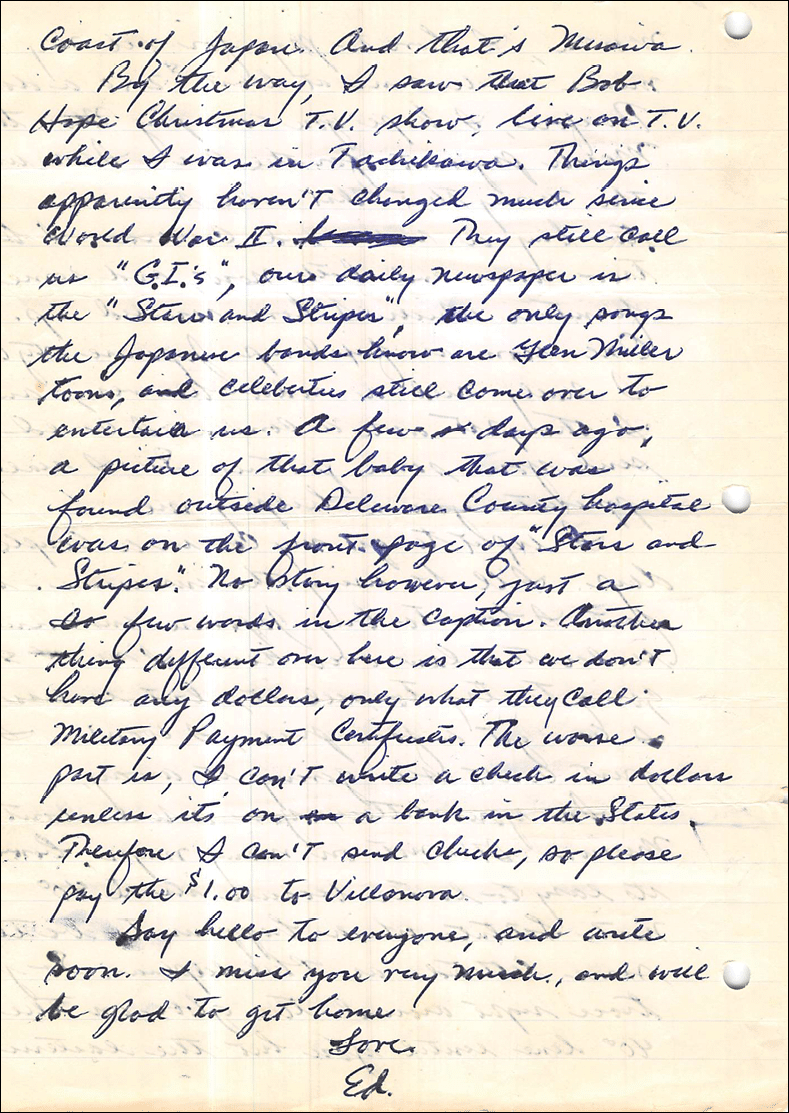 Coast of Japan. And that's Misawa.
By the way, I saw that Bob
Hope Christmas T.V. show, live on T.V.
while I was in Tachikawa. Things
apparently haven't changed much since
World War II. They still call
us "G.I.'s", our daily newspaper is
the "Stars and Stripes", the only songs
the Japanese bands know are Glen Miller
toons, and celeberties still come over to
entertain us. A few days ago,
a picture of that baby that was
found outside Delaware County hospital
was on the front page of "Stars and
Stripes". No story however, just a
few words in the caption. Another
thing different over here is that we don't
have any dollars, only what they call
Military Payment Certificates. The worse
part is, I can't write a check in dollars
unless it's on a bank in the States.
Therefore I can't send checks, so please
pay the $1.00 to Villanova.
Say hello to everyone, and write
soon. I miss you very much, and will
be glad to get home
Love.
Ed.